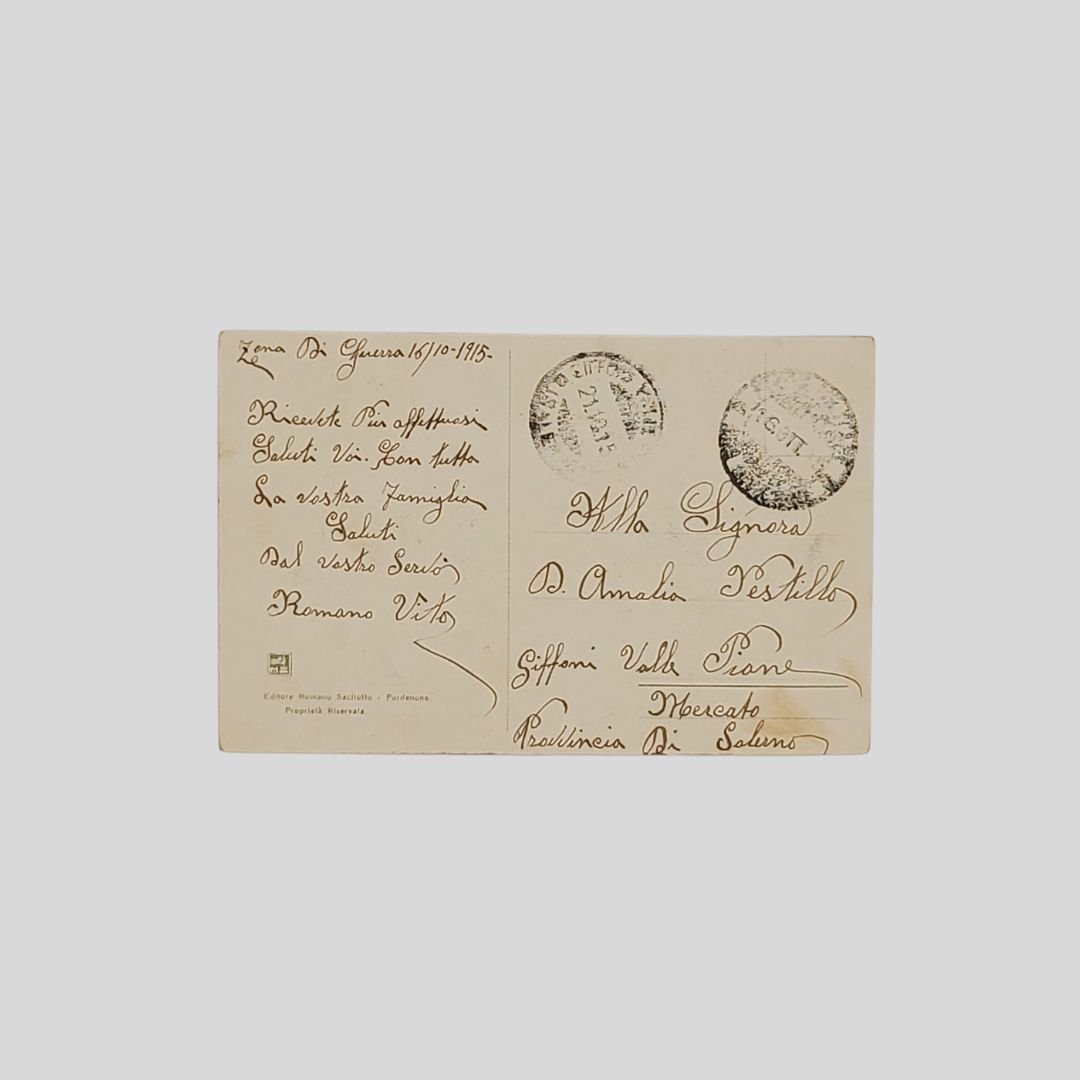 Zona Di Guerra 16/10-1915-
Ricevete Piu affettuosi
Saluti Voi. Con tutta
La vostra Famiglia
Saluti
Dal vostro Servo
Romano Vito
Editore Romano Sacilotto - Pordenone
Proprietà Riservata.
21.10.15
16.OTT.
Alla Signora
D. Amalia Pestillo
Giffoni Valle Piane
Mercato
Provvincia Di Salerno